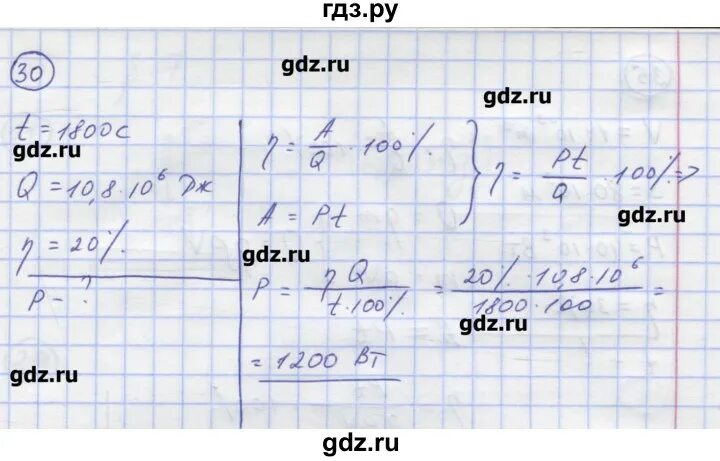 гдз.ру
30
gdz.ru
gdz.ru
t = 1800 с
gdz.ru
Q = 10,8·10⁶ Дж
η = 20%.
P - ?
η = A/Q · 100%.
A = Pt
} η = Pt/Q · 100% =>
gdz.ru
gdz.ru
P = ηQ/t·100% = 20%·10,8·10⁶/1800·100 =
gdz.ru
= 1200 Вт
gdz.ru
gdz.ru